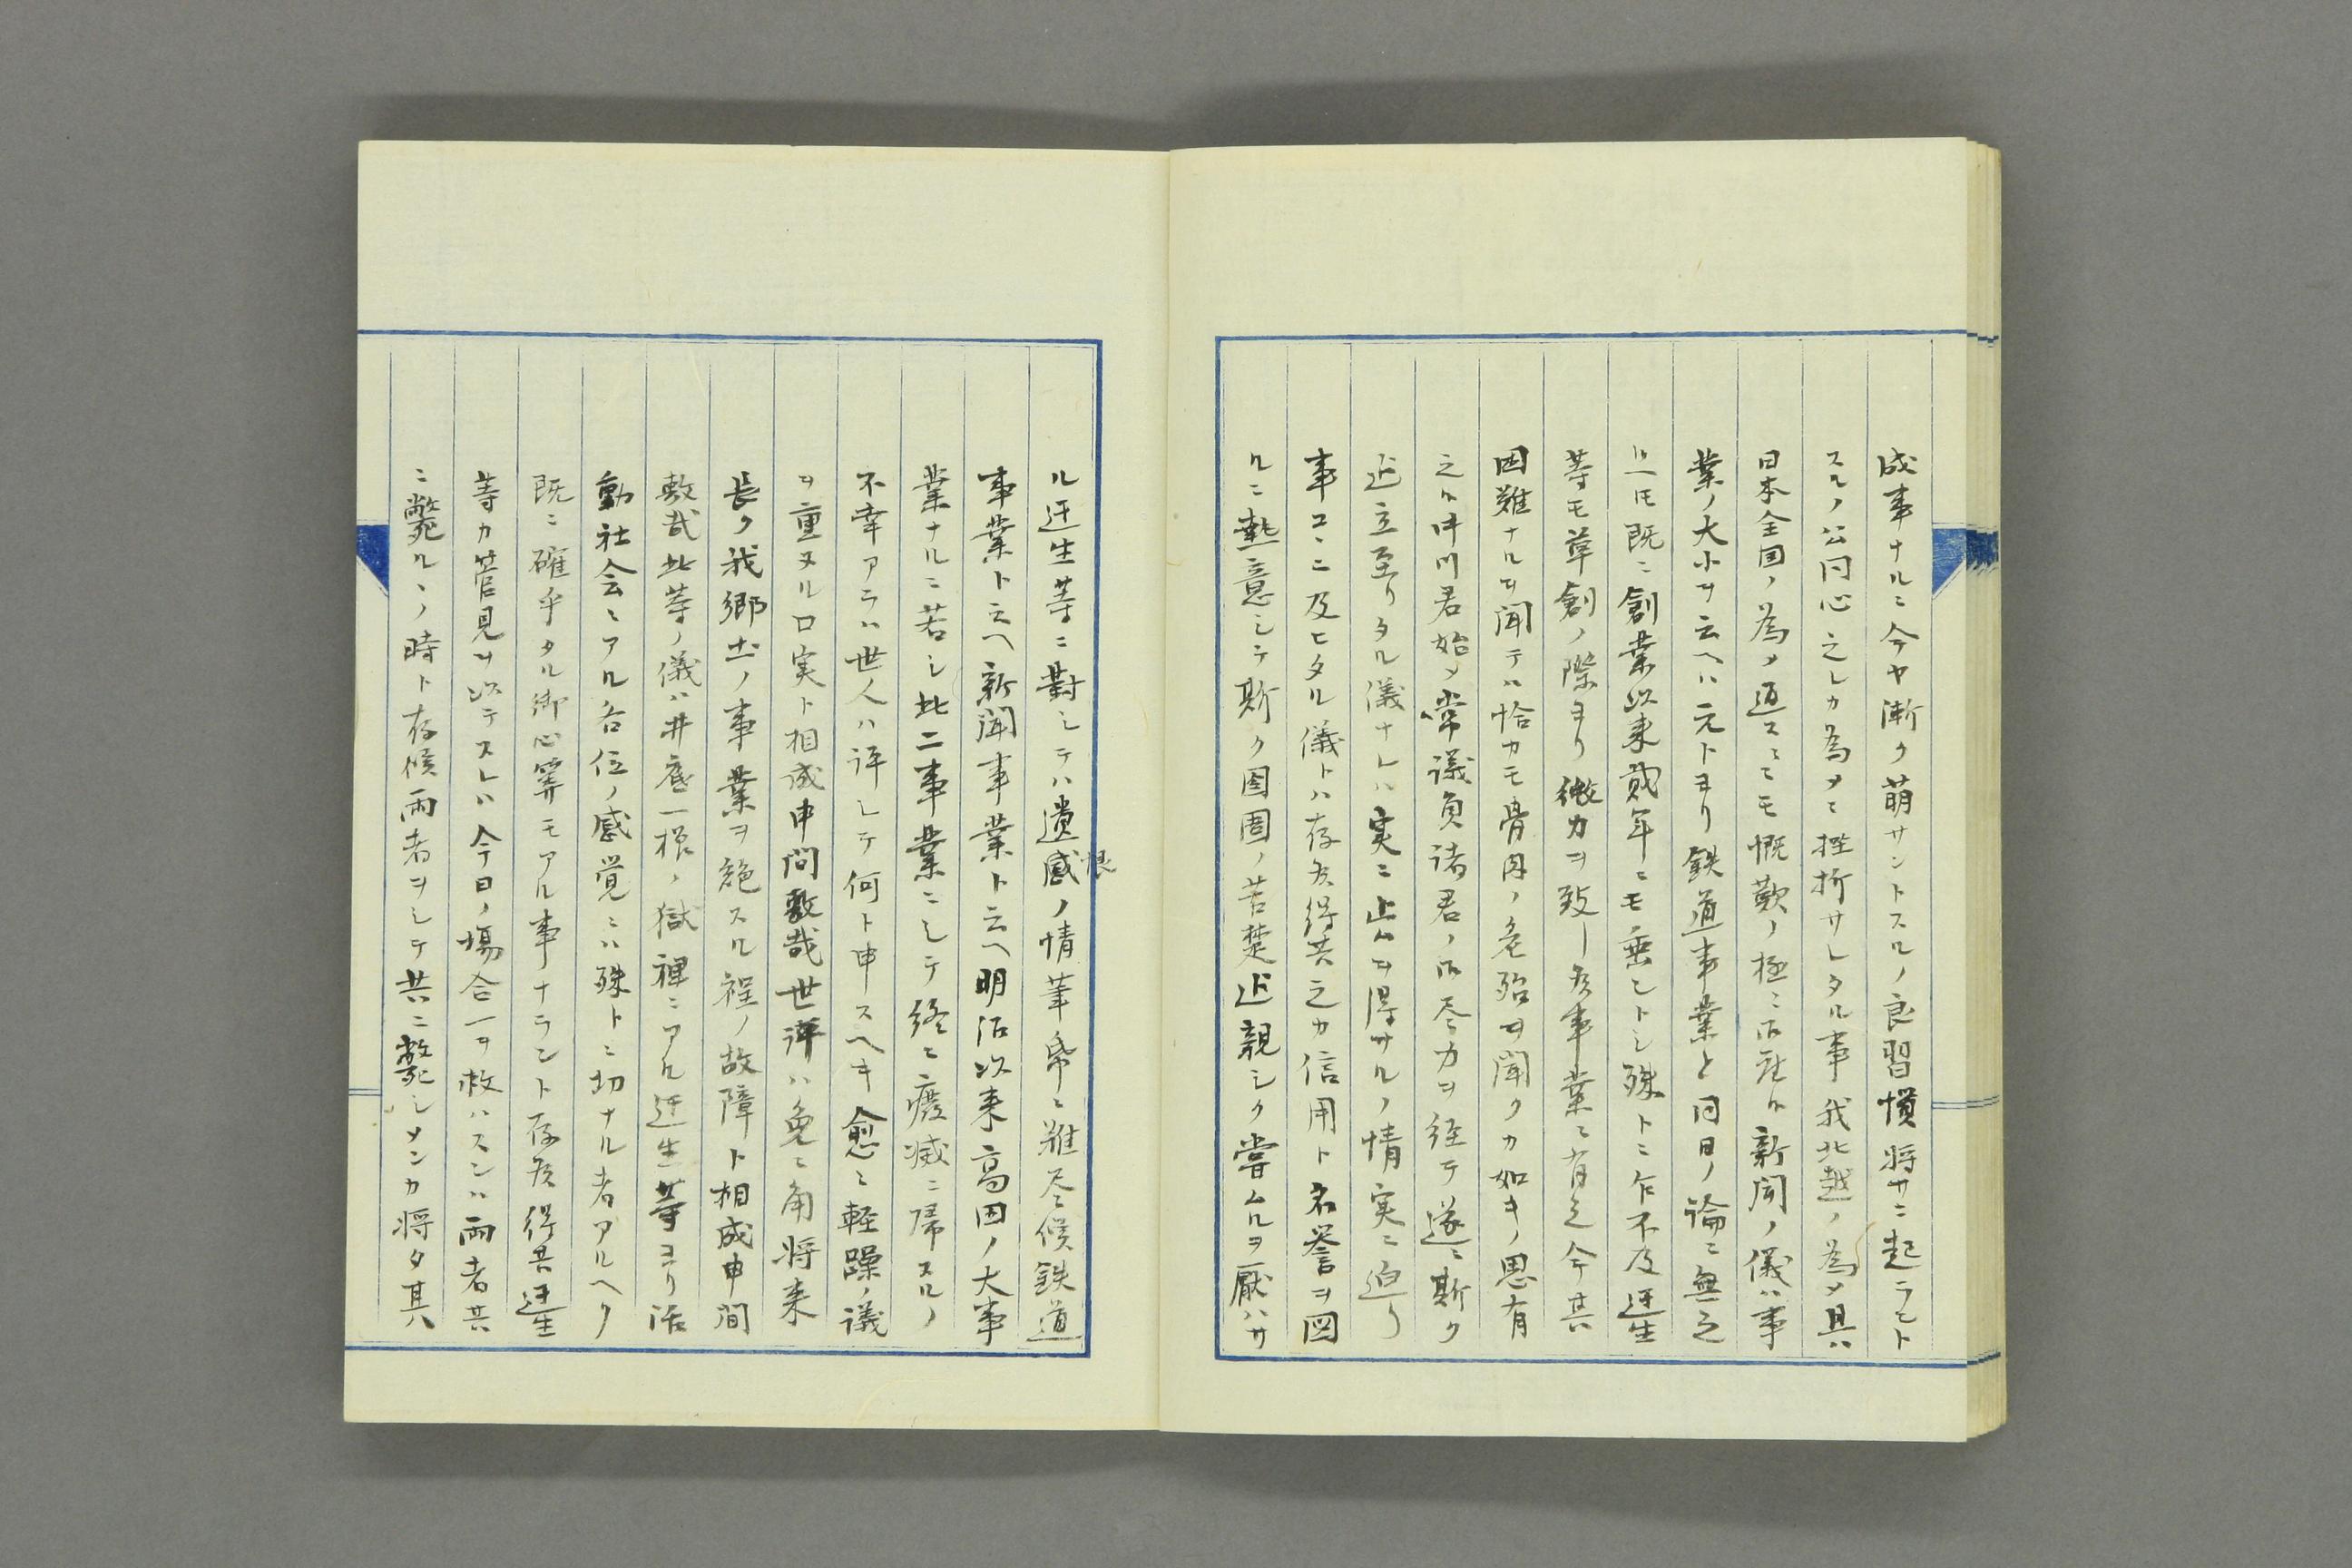 成事ナルニ今ヤ漸ク萌サントスルノ良習慣将サニ起ラントスルノ公同心之レカ為メニ挫折サレタル事我北越ノ為メ具ハ
日本全国ノ為メ通スニモ慨歎ノ極ニ御座候新聞ノ儀ハ事
業ノ大小ヲ云ヘハ元トヨリ鉄道事業と同日ノ論ニ無之
共既ニ創業以来貮年ニモ垂ントシ殊トニ乍不及迂生
等モ草創ノ際ヨリ微力ヲ致シ候事業ニ有之今其
困難ナルヲ聞テハ恰カモ骨肉ノ危殆ヲ聞クカ如キノ思有
之候 川君始メ常議員諸君ノ御尽力ヲ経テ遂ニ斯ク
迄立至リタル儀ナレハ実ニ止ムヲ得サルノ情実ニ迫リ
事コヽニ及ヒタル儀トハ存候得共之カ信用ト名誉ヲ図
ルニ熱意シテ斯ク囹圄ノ苦楚迄親シク嘗ムルヲ厭ハサ
ル迂生等ニ對シテハ遺感ノ情筆帋ニ難尽候鉄道
恨
事業ト云ヘ新聞事業ト云ヘ明治以来高田ノ大事
業ナルニ若シ此二事業ニシテ終ニ廃滅ニ帰スルノ
不幸アラハ世人ハ評シテ何ト申スヘキ愈ニ軽躁ノ議
ヲ重ヌル口実ト相成申間敷哉世評ハ兎ニ角将来
長ク我郷土ノ事業ヲ絶スル程ノ故障ト相成申間
敷哉此等ノ儀ハ井底一様ノ獄裡ニアル迂生等ヨリ活
動社会ニアル各位ノ感覚ニハ殊トニ切ナル者アルヘク
既ニ確乎タル御心算モアル事ナラント存候得共迂生
等カ管見ヲ以テスレハ今日ノ場合一ヲ救ハスンハ両者共
ニ斃ルヽノ時ト存候両者ヲシテ共ニ斃シメンカ将タ其